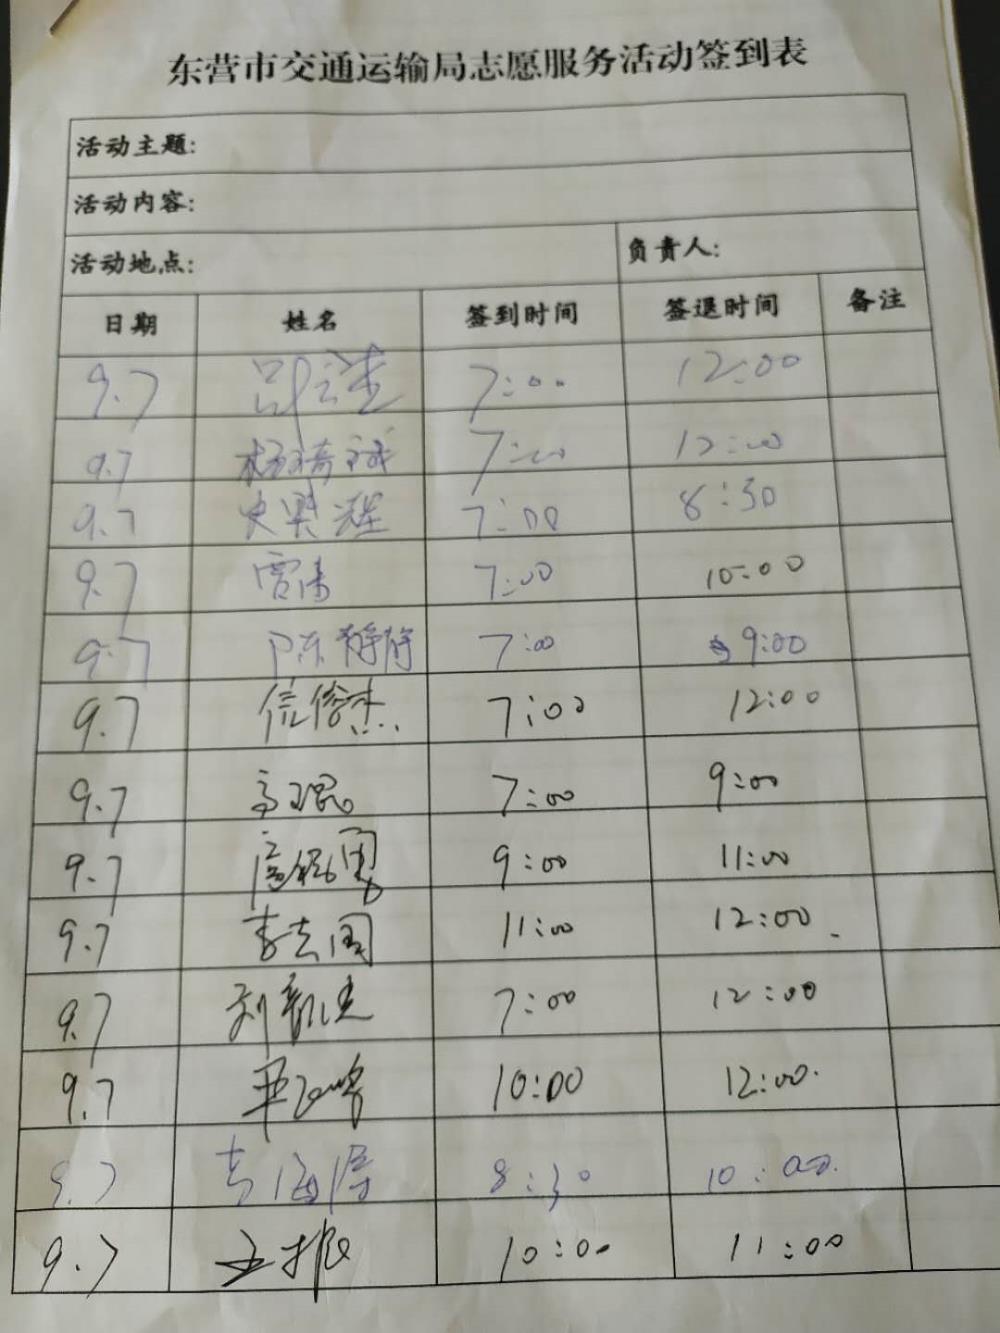 东营市交通运输局志愿服务活动签到表
活动主题:
活动内容:
活动地点: 负责人:
日期 姓名 签到时间 签退时间 备注
9.7 7:00 12:00
9.7 杨琦诚 7:00 12:00
9.7 史奥辉 7:00 8:30
9.7 贾涛 7:00 10:00
9.7 陈静静 7:00 9:00
9.7 信俊杰 7:00 12:00
9.7 高琨 7:00 9:00
9.7 9:00 11:00
9.7 李志国 11:00 12:00
9.7 刘凯杰 7:00 12:00
9.7 10:00 12:00
9.7 8:30 10:00
9.7 王振 10:00 11:00